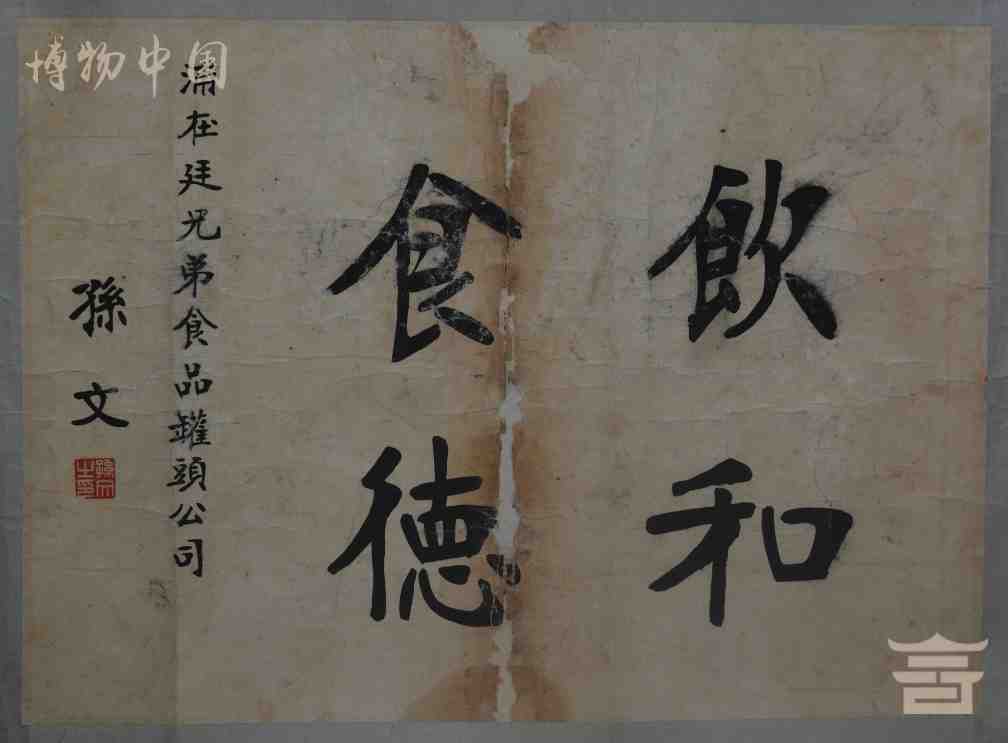 飲和
食德
浦在廷兄弟食品罐頭公司
孫文
孫文之印
博物中国